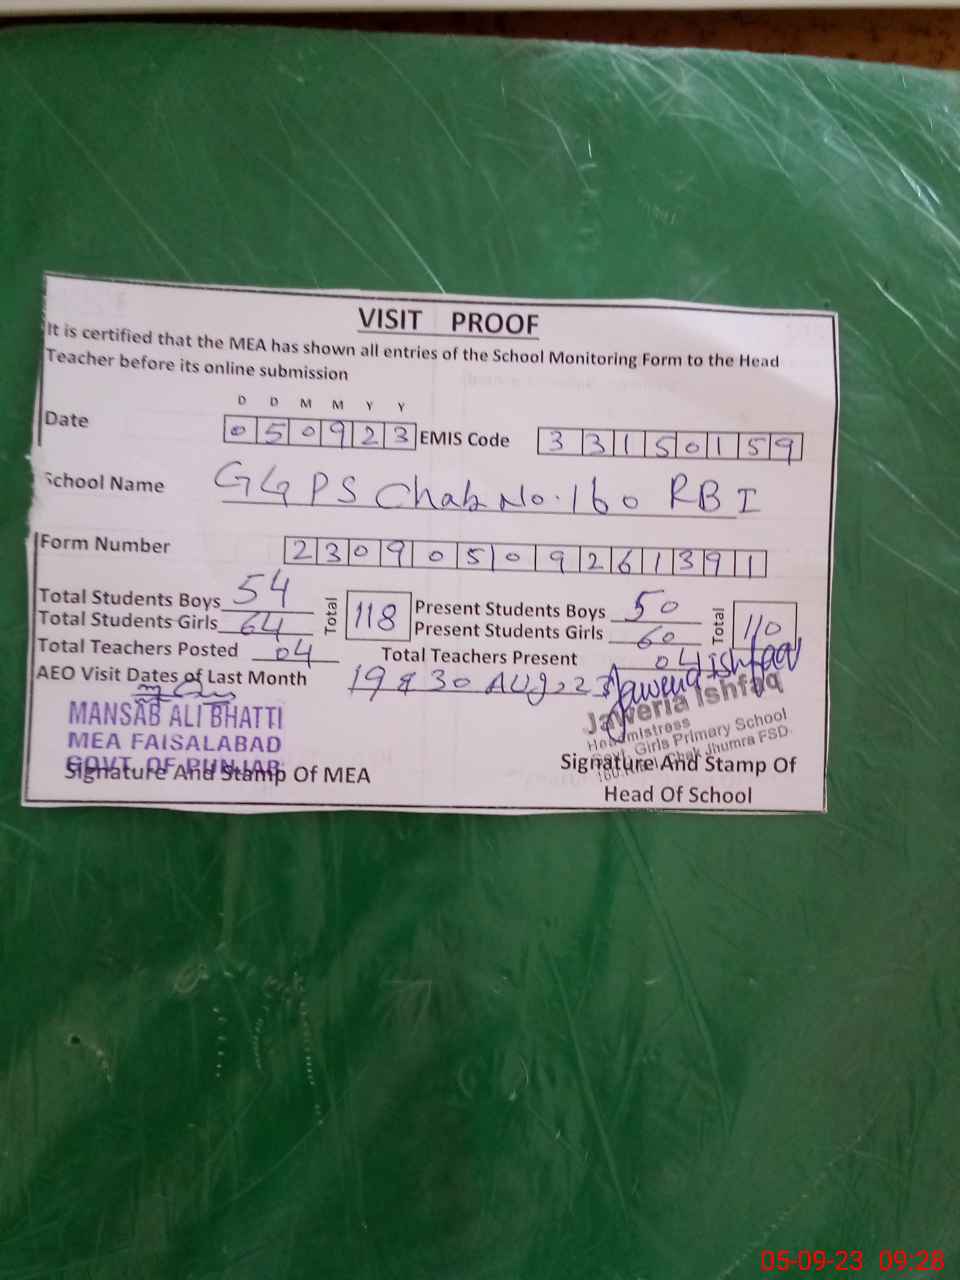 VISIT PROOF
It is certified that the MEA has shown all entries of the School Monitoring Form to the Head
Teacher before its online submission
D D M M Y Y
Date 050923 EMIS Code 33150159
School Name GGPS Chak No. 160 RB I
Form Number 23090509261391
Total Students Boys 54 Total 118 Present Students Boys 50 Total 110
Total Students Girls 64 Present Students Girls 60
Total Teachers Posted 04 Total Teachers Present 04
AEO Visit Dates of Last Month 19 & 30 Aug, 23 Jaweria Ishfaq
MANSAB ALI BHATTI
MEA FAISALABAD
GOVT. OF PUNJAB
Signature And Stamp Of MEA
Jaweria Ishfaq
Headmistress
Govt. Girls Primary School
Chak Jhumra FSD
Signature And Stamp Of
Head Of School
05-09-23 09:28